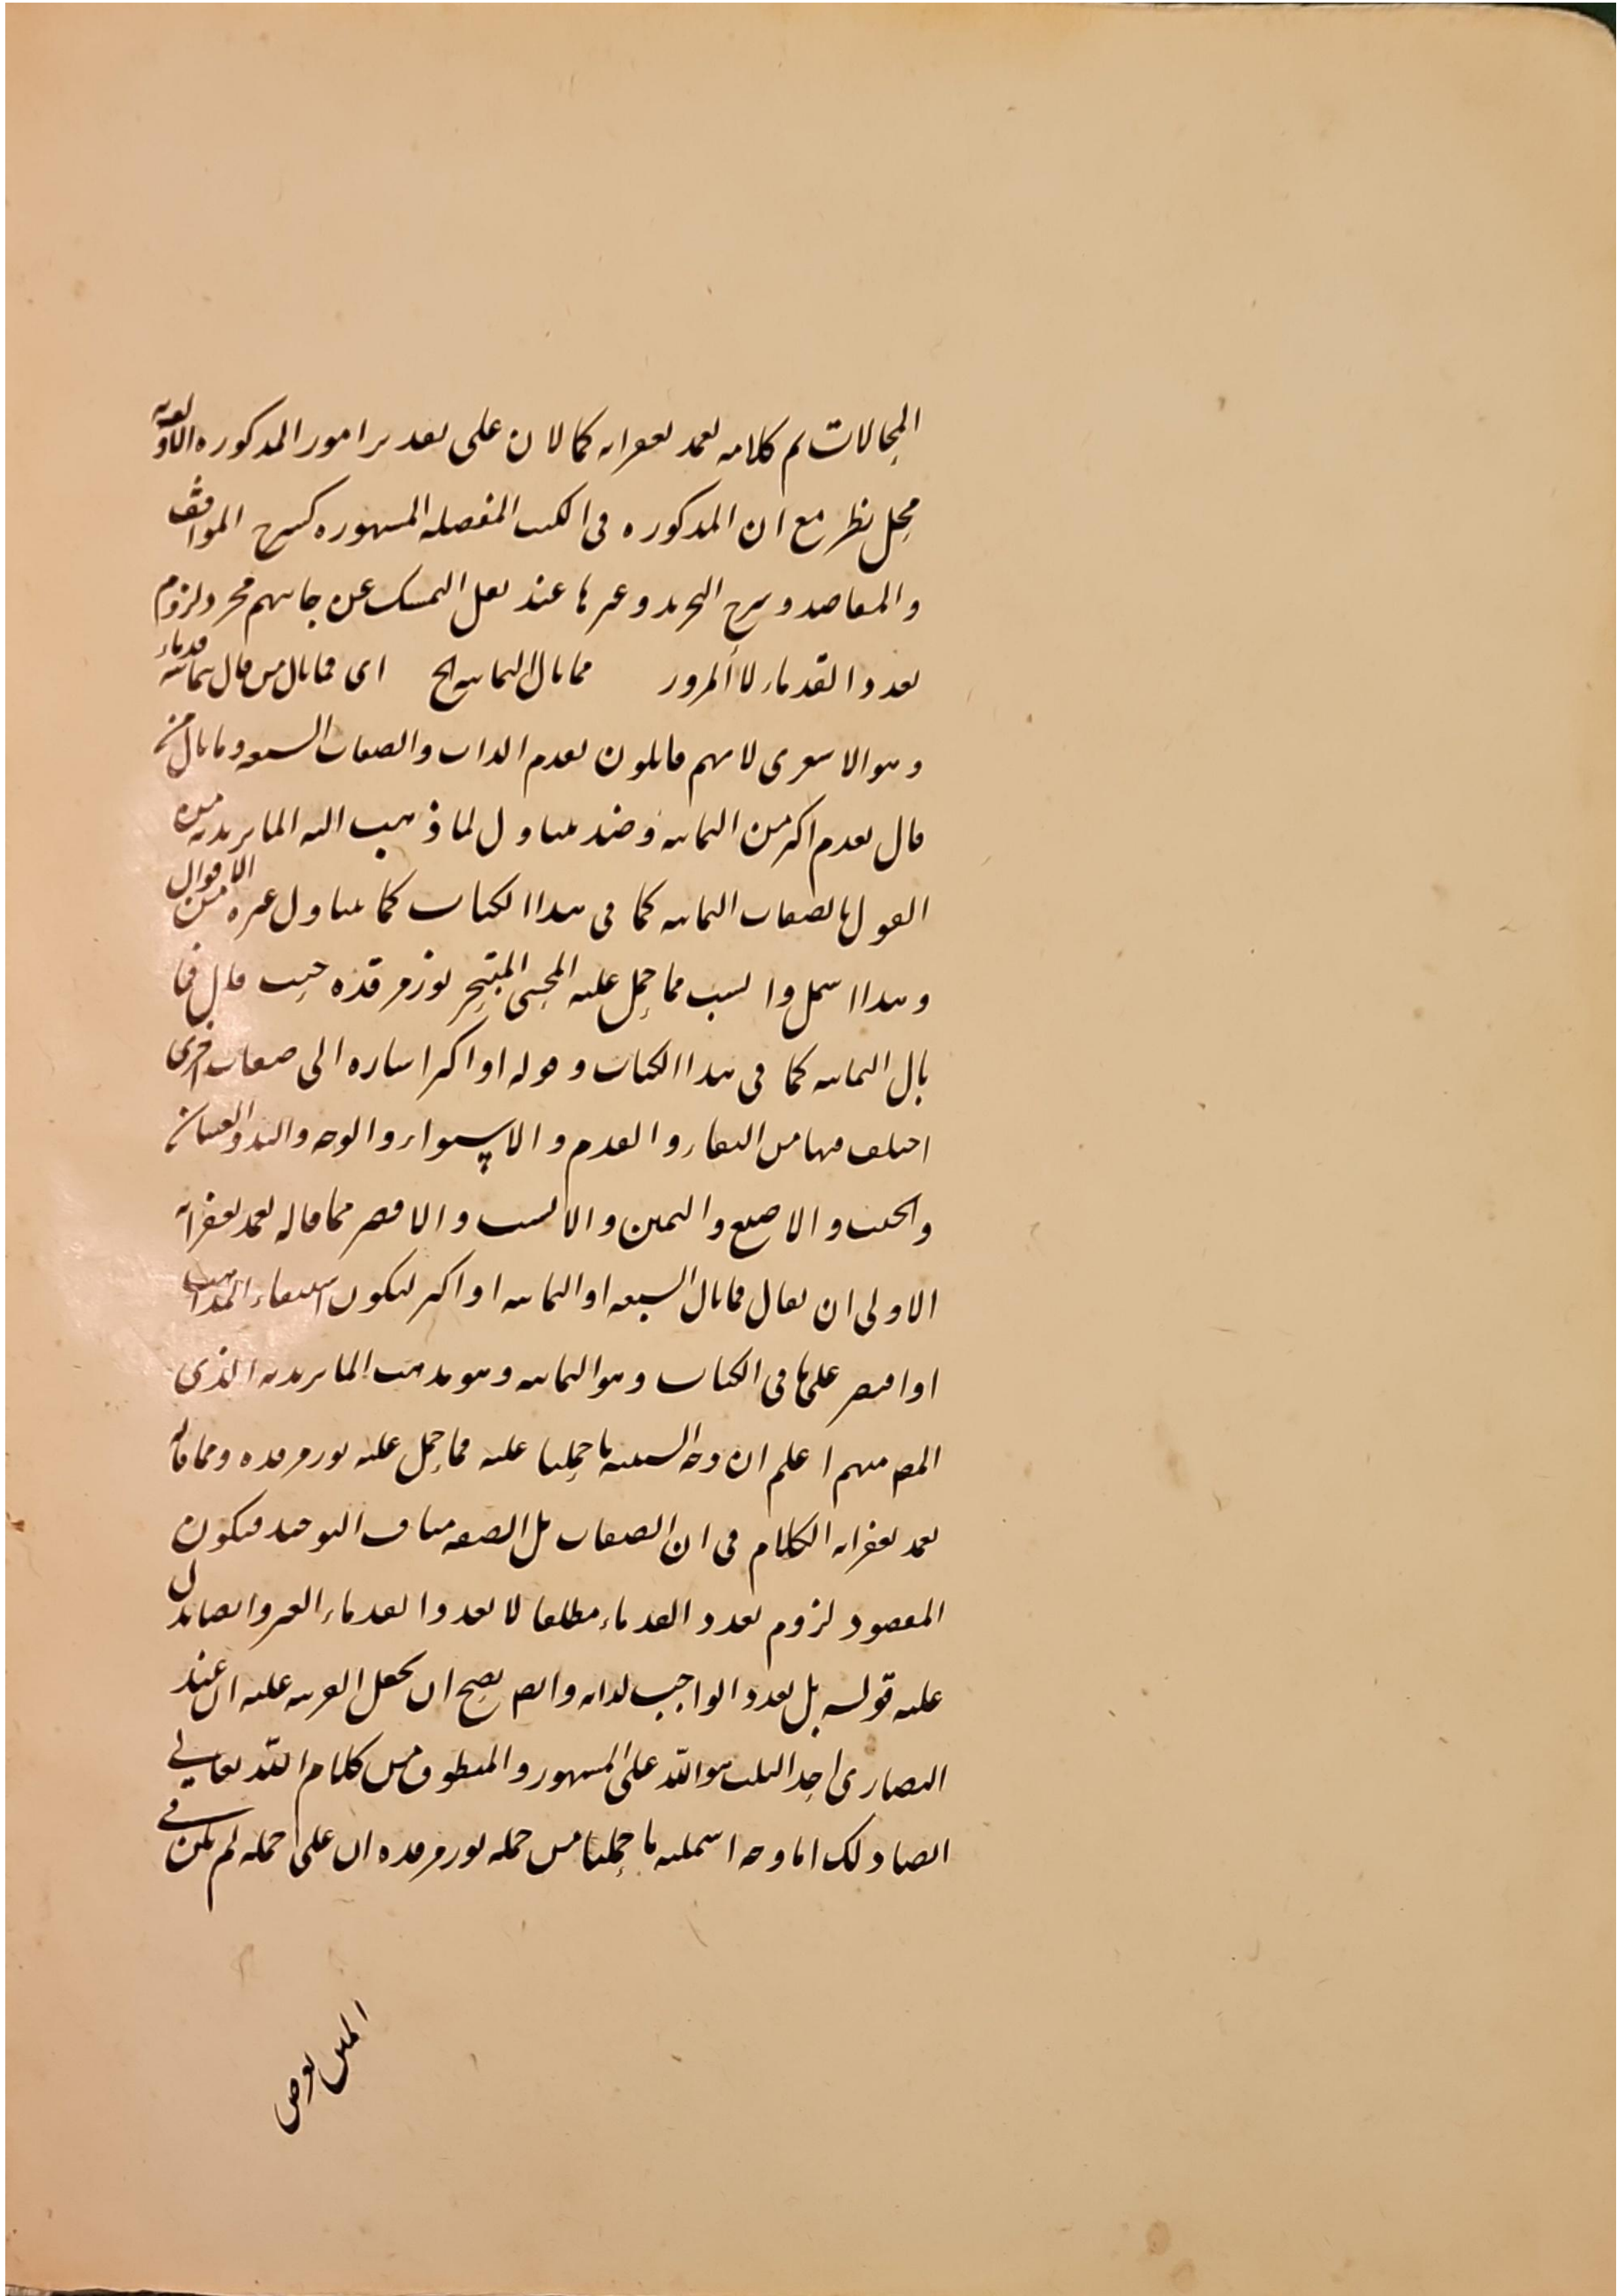 المحالات تم كلامه تغمد بغفرانه كمالان على تقدير امور المذكوره
محل نظر مع ان المذكوره فى الكتب المفصله المشهوره كشرح المواقف
والمقاصد وشرح التجريد وغيرها عند نقل التمسك عن جانبهم مجرد لزوم
تعدد القدماء لا المرور فما بال الثمانيه الخ اى فما بال من قال بثمانيه قدماء
وهو الاشعرى لانهم قايلون بقدم الذات والصفات السبعه وما بال من
قال بقدم اكثر من الثمانيه متناول لما ذهب اليه الماتريديه من
القول بالصفات الثمانيه كما فى هذا الكتاب كما يتناول غيره من الاقوال
وهذا اشمل وانسب مما حمل عليه المحشى المتبحر نور مرقده حيث قال فما
بال الثمانيه كما فى هذا الكتاب وقوله او اكثر اشاره الى صفات اخرى
اختلف فيها من البقاء والقدم والاستواء والوجه واليد والعينان
والجنب والاصبع واليمين والاانسب والاقصر مما قاله تغمد بغفرانه
الاولى ان يقال فما بال السبعه او الثمانيه او اكثر ليكون استيفاء المذاهب
او اقتصر على ما فى الكتاب وهو الثمانيه وهو مذهب الماتريديه الذى
المص منهم اعلم ان وجه انسبيه ما حملنا عليه مما حمل عليه نور مرقده ومما قاله
تغمد بغفرانه الكلام فى ان الصفات بل الصفه مناف التوحيد فيكون
المقصود لزوم تعدد القدماء مطلقا لا تعدد القدماء الغير وايضا يدل
عليه قوله بل تعدد الواجب لذاته وايض يصح ان يجعل القرينه عليه ان عند
النصارى احد الثلث هو الله على المشهور والمنطوق من كلام الله تعالى
ايضا ذلك اما وجه اشمليه ما حملنا من حمله نور مرقده ان على حمله لم يكن فى